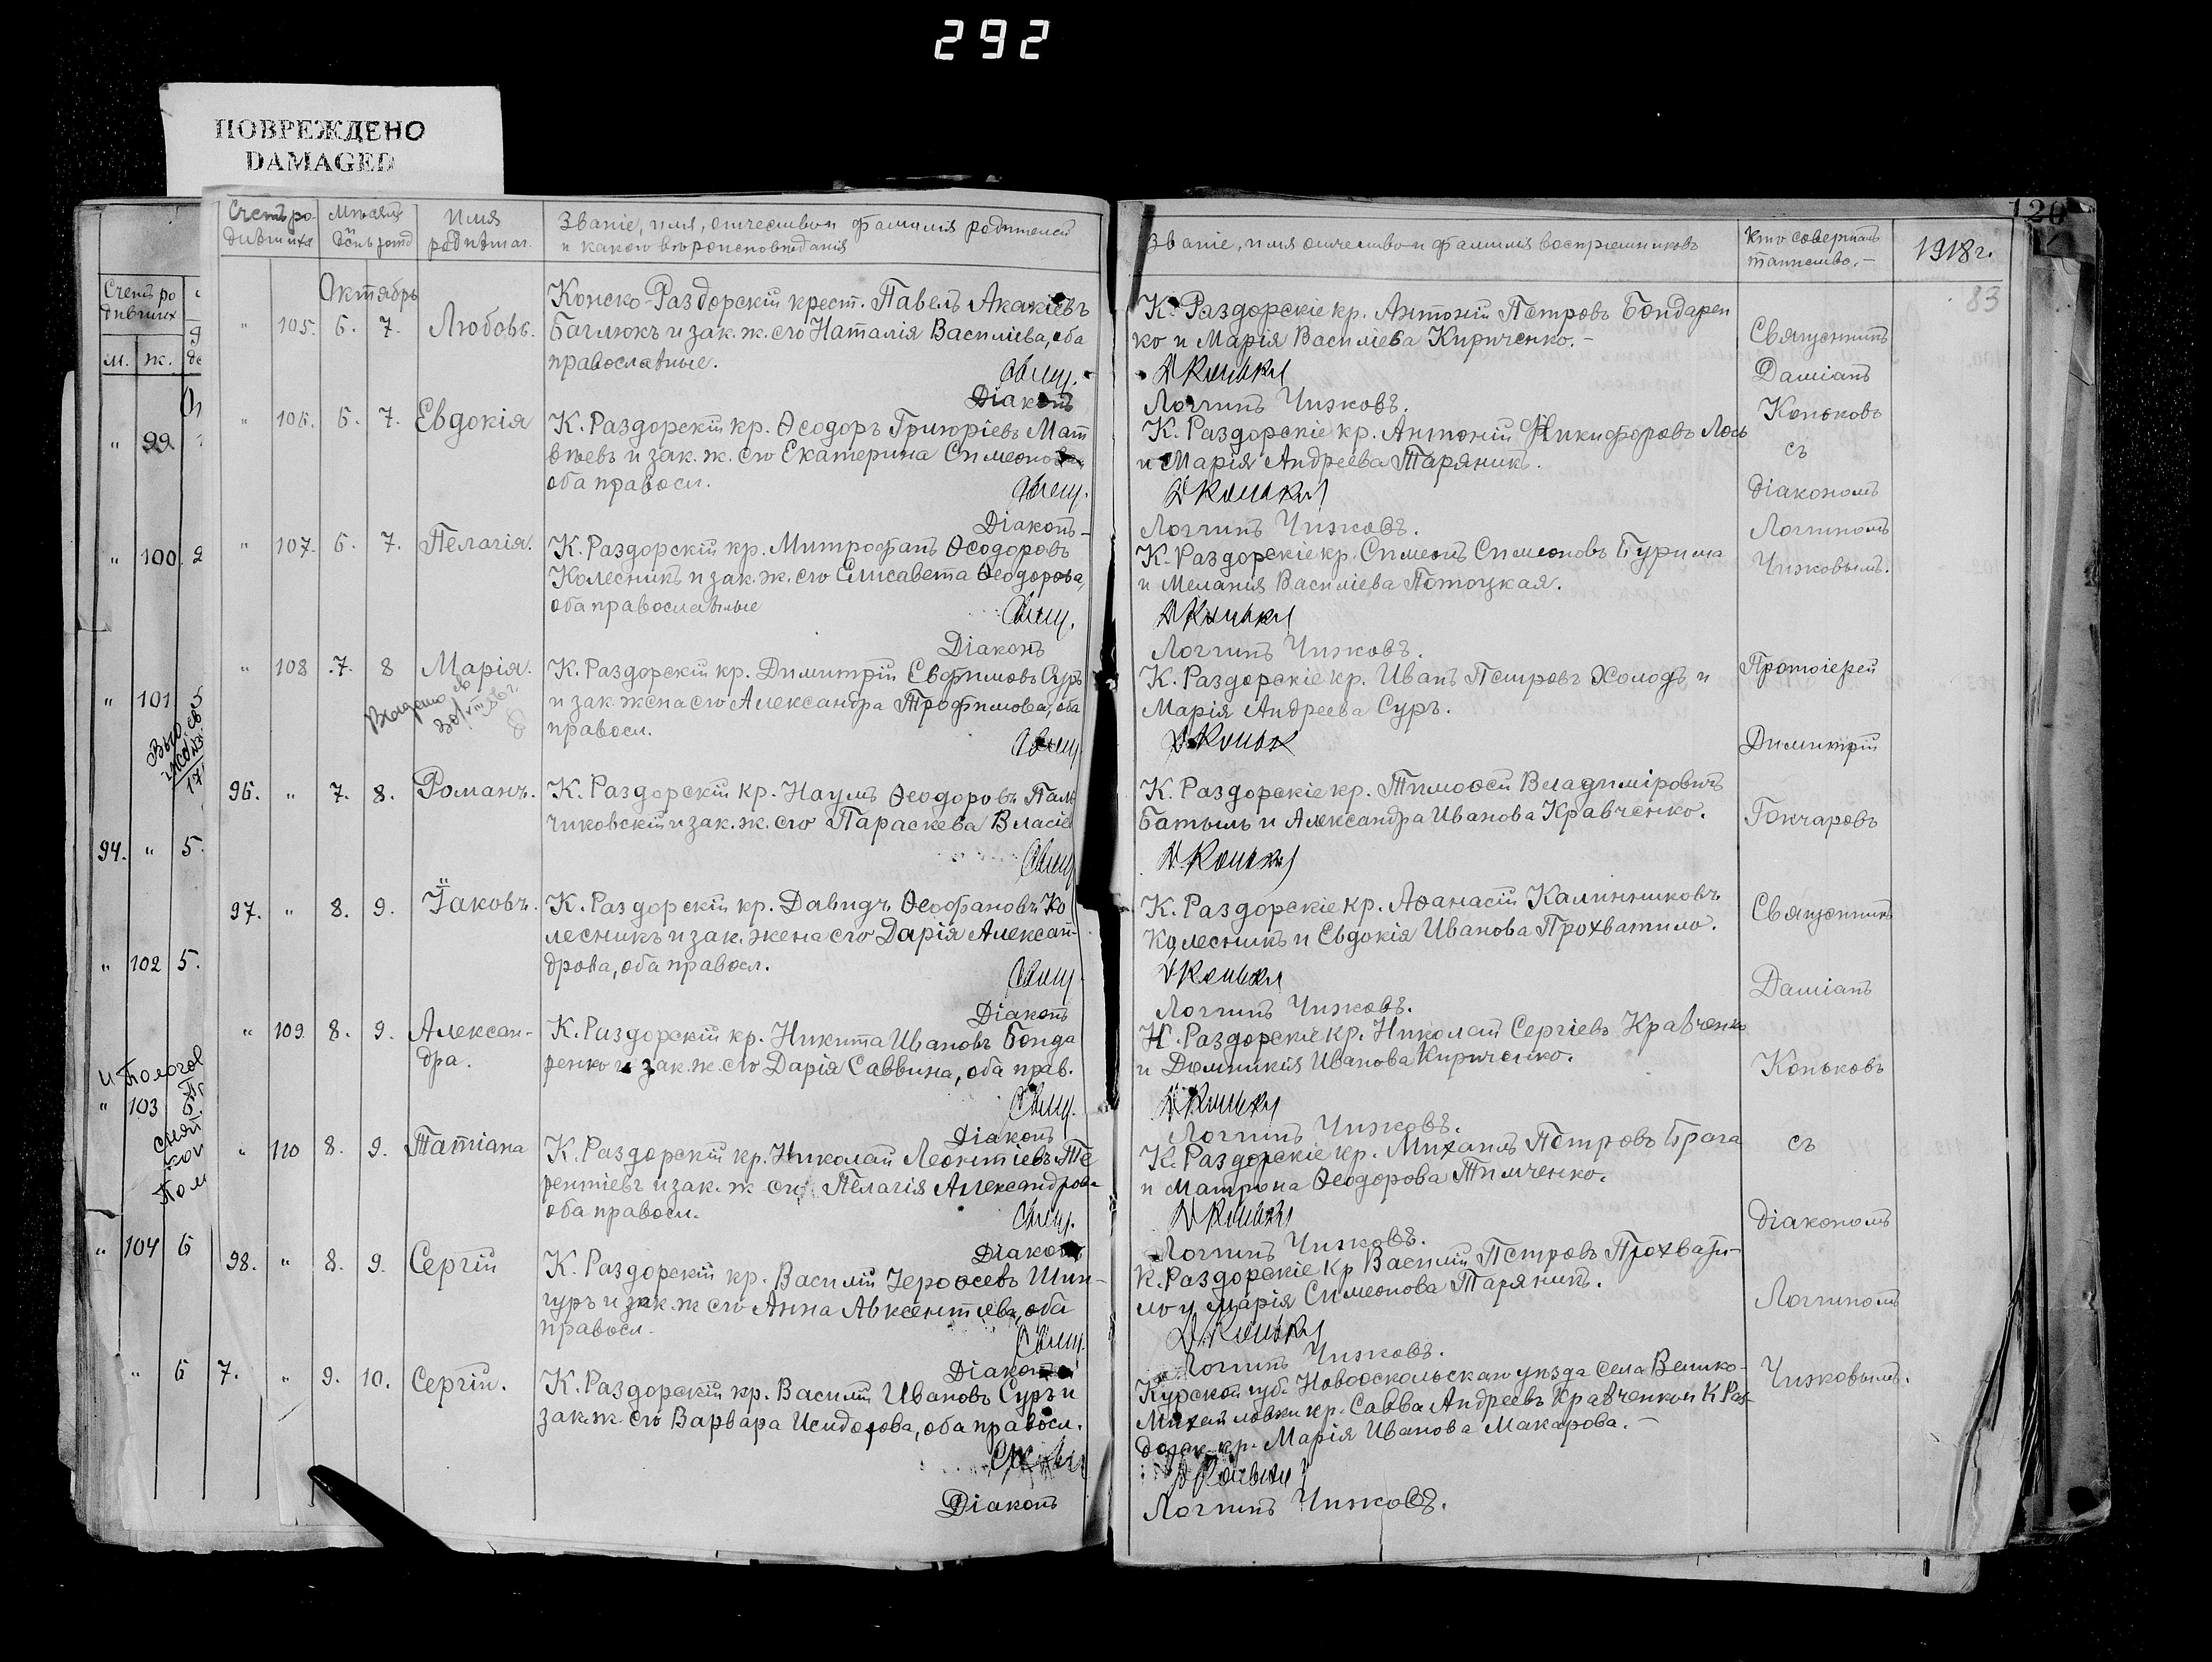 292
ПОВРЕЖДЕНО
DAMAGED
120
Счетъ ро
дившихъ
м. ж.
" 99.
" 100. 2
" 101 5
94. " 5.
" 102 5.
" 103
" 104 6
" 6
Счетъ ро-
дившихъ
Мѣсяцъ
День рожд
Имя
родившаг.
Званіе, имя, отчество и фамилія родителей
и какого вѣроисповѣданія
Октябрь
" 105. 6. 7. Любовь.
Конско-Раздорскій крест. Павелъ Акакіевъ
Баглюкъ и зак. ж. его Наталія Василіева, оба
православные.
Свящ.
Діаконъ
" 106. 6. 7. Евдокія
К. Раздорскій кр. Ѳеодоръ Григоріевъ Мат
вѣевъ и зак. ж. его Екатерина Симеонова
оба правосл.
Свящ.
Діаконъ
" 107. 6. 7. Пелагія.
К. Раздорскій кр. Митрофанъ Ѳеодоровъ
Колесникъ и зак. ж. его Елисавета Ѳеодорова,
оба православные
Свящ.
Діаконъ
" 108 7. 8 Марія.
К. Раздорскій кр. Димитрій Евфимовъ Суръ
и зак. жена его Александра Трофимова, оба
правосл.
Свящ
96. " 7. 8. Романъ.
К. Раздорскій кр. Наумъ Ѳеодоровъ Паль
чиковскій и зак. ж. его Параскева Власіе
Свящ
97. " 8. 9. Іаковъ.
К. Раздорскій кр. Давидъ Ѳеофановъ Ко
лесникъ и зак. жена его Дарія Алексан-
дрова, оба правосл.
Свящ
Діаконъ
" 109. 8. 9. Алексан-
дра.
К. Раздорскій кр. Никита Ивановъ Бонда
ренко и зак. ж. его Дарія Саввина, оба прав.
Свящ.
Діаконъ
" 110 8. 9. Татіана
К. Раздорскій кр. Николай Леонтіевъ Те
рентіевъ и зак. ж его Пелагія Александрова
оба правосл.
Свящ.
Діаконъ
98. " 8. 9. Сергій
К. Раздорскій кр. Василій Іероѳеевъ Шин-
гуръ и зак. ж его Анна Авксентіева, оба
правосл.
Свящ.
Діаконъ
7. " 9. 10. Сергій.
К. Раздорскій кр. Василій Ивановъ Суръ и
зак. ж. его Варвара Исидорова, оба правосл.
Діаконъ
Званіе, имя отчество и фамилія воспріемниковъ
К. Раздорскіе кр. Антоній Петровъ Бондарен
ко и Марія Василіева Кириченко. -
Д Коньков
Логгинъ Чижковъ.
К. Раздорскіе кр. Антоній Никифоровъ Лось
и Марія Андреева Таряникъ.
Д Коньков
Логгинъ Чижковъ.
К. Раздорскіе кр. Симеонъ Симеоновъ Бурима
и Меланія Василіева Потоцкая.
Д Коньков
Логгинъ Чижковъ.
К. Раздорскіе кр. Иванъ Петровъ Холодъ и
Марія Андреева Суръ.
Д Коньков
К. Раздорскіе кр. Тимоѳей Владиміровичъ
Батыль и Александра Иванова Кравченко.
Д Коньков
К. Раздорскіе кр. Аѳанасій Калинниковъ
Колесникъ и Евдокія Иванова Прохватило.
Д Коньков
Логгинъ Чижковъ.
К. Раздорскіе кр. Николай Сергіевъ Кравченко
и Домникія Иванова Кириченко.
Д Коньков
Логгинъ Чижковъ.
К. Раздорскіе кр. Михаилъ Петровъ Брага
и Матрона Ѳеодорова Тимченко.
Д Коньков
Логгинъ Чижковъ.
К. Раздорскіе кр Василій Петровъ Прохвати-
ло и Марія Симеонова Таряникъ.
Д Коньков
Логгинъ Чижковъ.
Курской губ. Новооскольскаго уѣзда села Велико-
Михайловки кр. Савва Андреевъ Кравченко и К Раз-
дорск. кр. Марія Иванова Макарова. -
Д Коньков
Логгинъ Чижковъ.
Кто совершалъ
таинство. -
Священникъ
Даміанъ
Коньковъ
съ
діакономъ
Логгиномъ
Чижковымъ.
Протоіерей
Димитрій
Гончаровъ
Священникъ
Даміанъ
Коньковъ
съ
діакономъ
Логгиномъ
Чижковымъ.
1918 г.
83